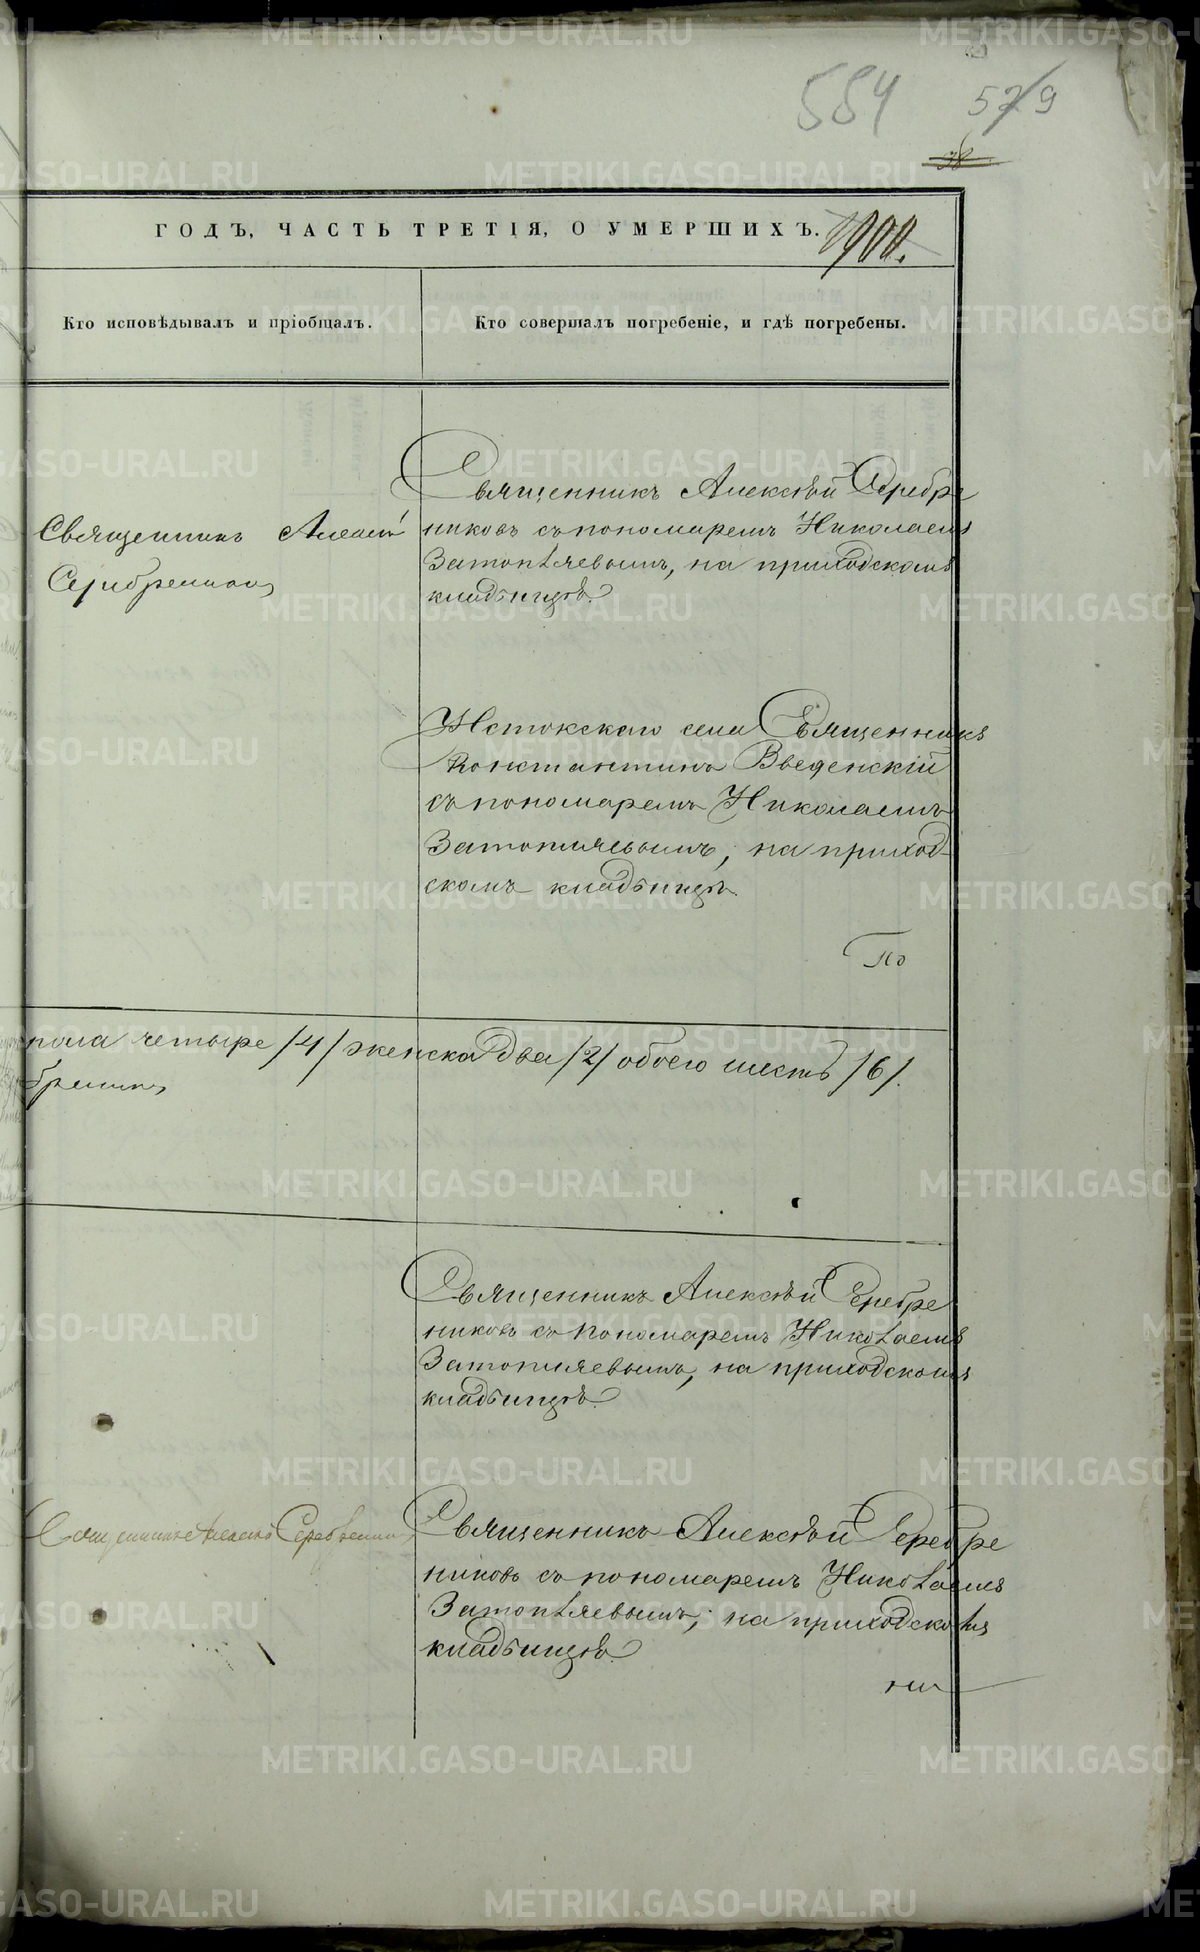 554
579
38
ГОДЪ, ЧАСТЬ ТРЕТІЯ, О УМЕРШИХЪ.
1900.
Кто исповѣдывалъ и пріобщалъ.
Кто совершалъ погребеніе, и гдѣ погребены.
Священникъ Алексѣй
Серебренниковъ
Священникъ Алексѣй Серебре
никовъ съ пономаремъ Николаемъ
Затопляевымъ, на приходскомъ
кладбищѣ.
Истокскаго села Священникъ
Константинъ Введенскій
съ пономаремъ Николаемъ
Затопляевымъ, на приход-
скомъ кладбищѣ.
По
пола четыре /4/ женска два /2/ обоего шесть /6/.
Священникъ Алексѣй Серебре
никовъ съ пономаремъ Николаемъ
Затопляевымъ, на приходскомъ
кладбищѣ.
Священникъ Алексѣй Серебренниковъ
Священникъ Алексѣй Серебре
никовъ съ пономаремъ Николаемъ
Затопляевымъ, на приходскомъ
кладбищѣ.
METRIKI.GASO-URAL.RU